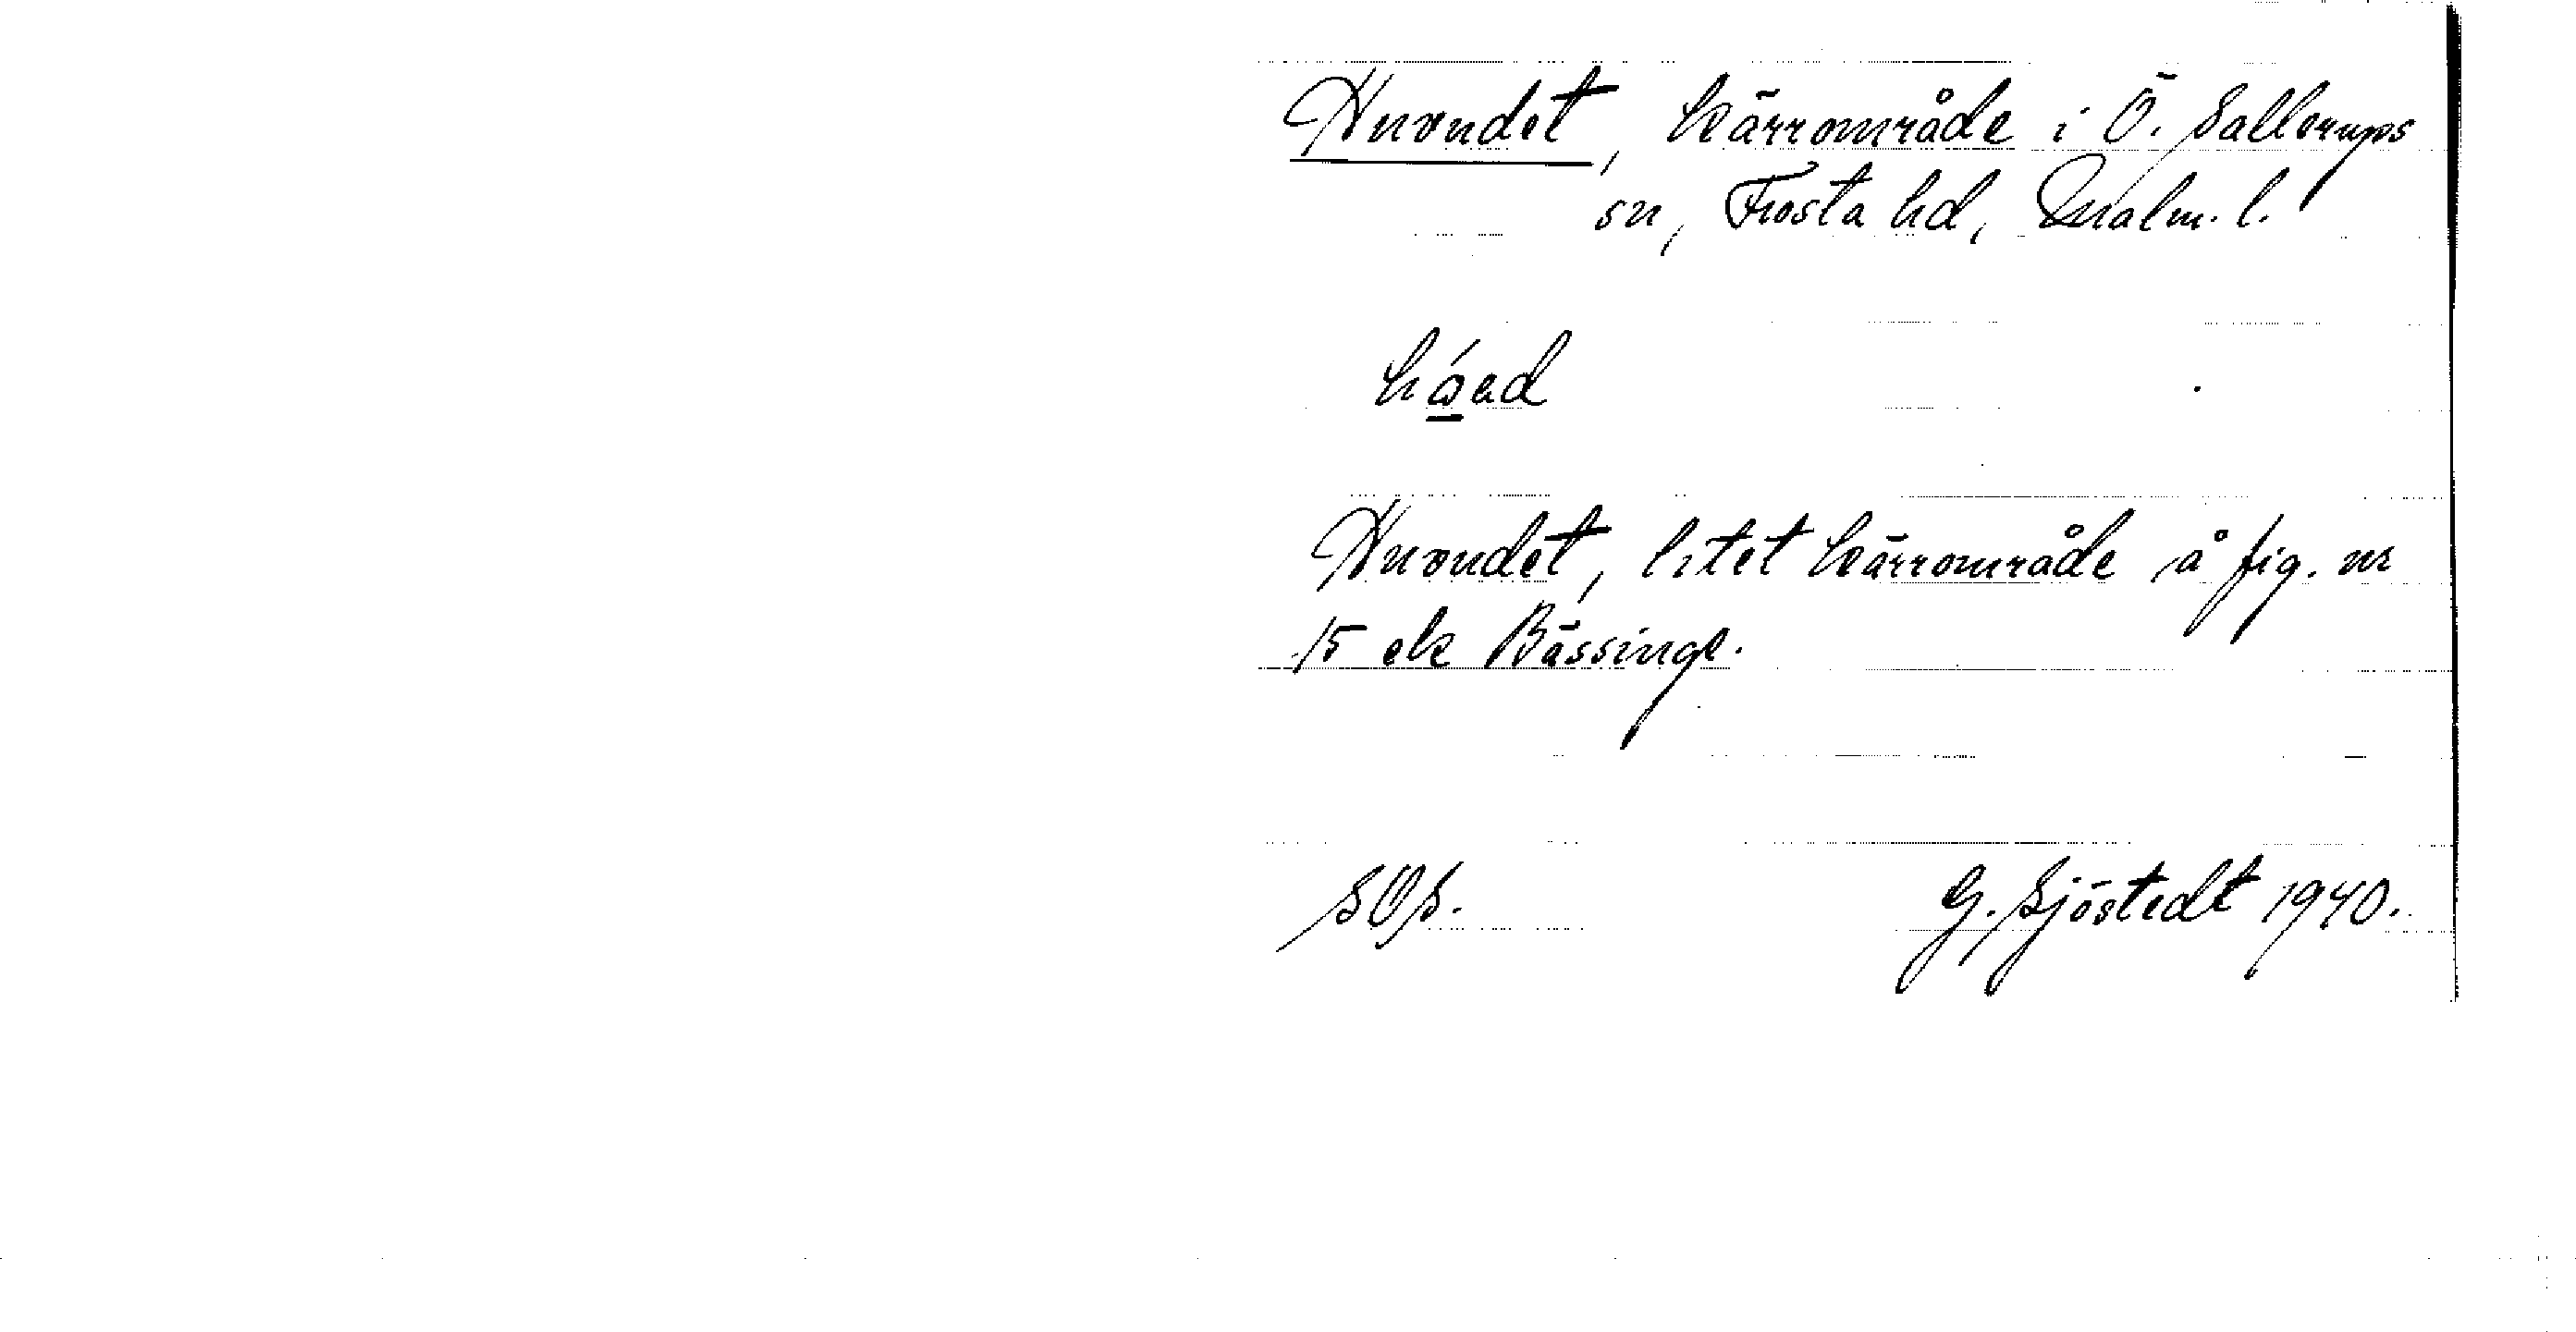 Huvudet, kärrområde i Ö. Sallerups
sn, Frosta hd, Malm. l.
Huvudet, litet kärrområde å fig. nr
15 ek Bässinge.
SOS.
G. Sjöstedt 1940.